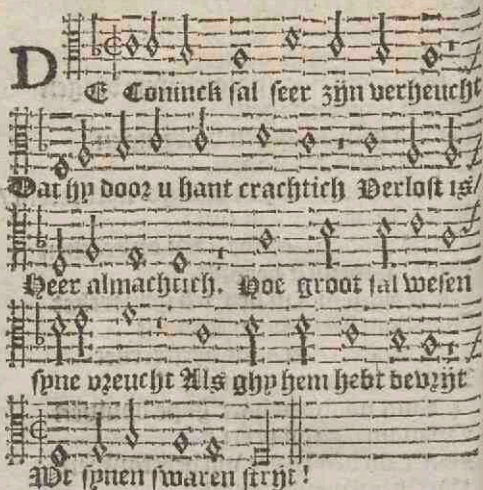 DE Coninck sal seer zijn verheucht
Dat hy door u hant crachtich Verlost is/
Heer almachtich. Hoe groot sal wesen
syne vreucht Als ghy hem hebt bevrijt
Wt synen swaren strijt!